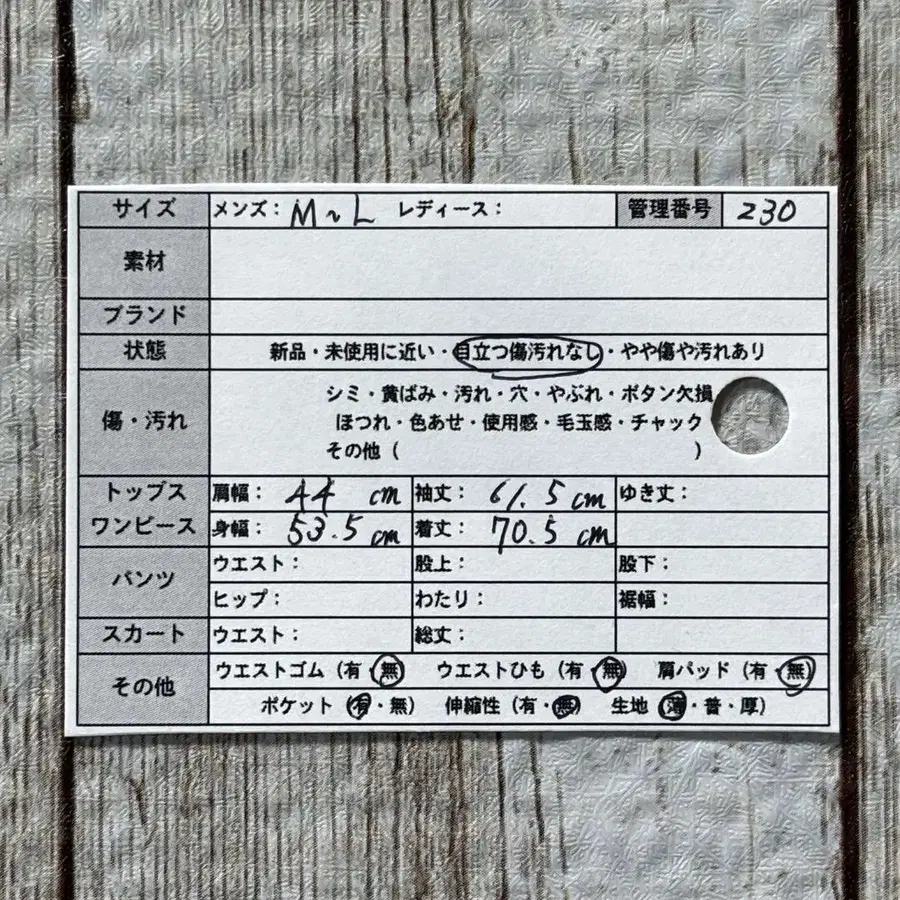 サイズ メンズ: M~L レディース: 管理番号 230
素材
ブランド
状態 新品・未使用に近い・目立つ傷汚れなし・やや傷や汚れあり
傷・汚れ シミ・黄ばみ・汚れ・穴・やぶれ・ボタン欠損
ほつれ・色あせ・使用感・毛玉感・チャック
その他（ ）
トップス 肩幅: 44 cm 袖丈: 61.5 cm ゆき丈:
ワンピース 身幅: 53.5 cm 着丈: 70.5 cm
パンツ ウエスト: 股上: 股下:
ヒップ: わたり: 裾幅:
スカート ウエスト: 総丈:
その他 ウエストゴム（有・無） ウエストひも（有・無） 肩パッド（有・無）
ポケット（有・無） 伸縮性（有・無） 生地（薄・普・厚）